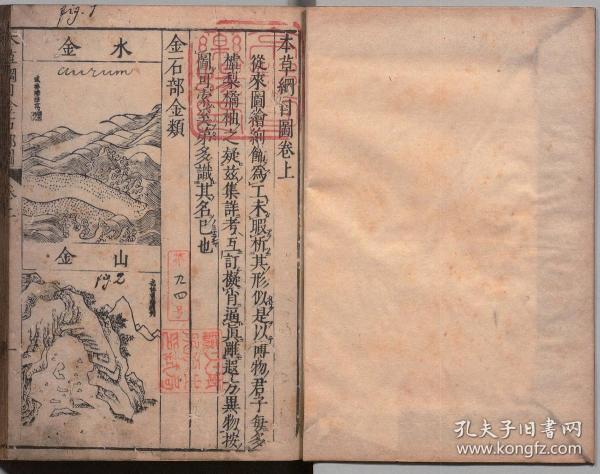 本草綱目圖卷上
從來圖繪絢飾爲工未暇析其形似是以博物君子每多
樝梨橘柚之疑茲集詳考互訂擬肖逼眞雖遐方異物按
圖可索第多識其名巳也
金石部金類
九四
fig. 1
水金
aurum
山金
fig 2
孔夫子旧书网
www.kongfz.com